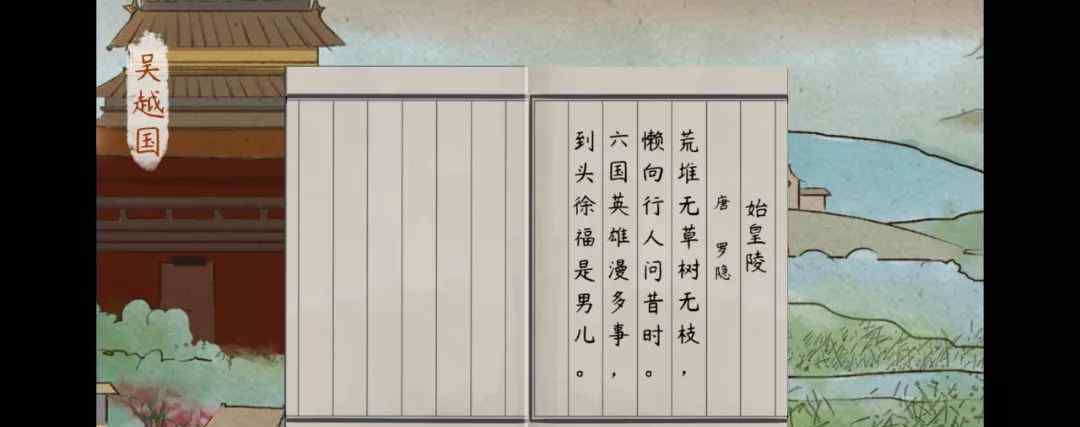 吴越国
始皇陵
唐 罗隐
荒堆无草树无枝，
懒向行人问昔时。
六国英雄漫多事，
到头徐福是男儿。